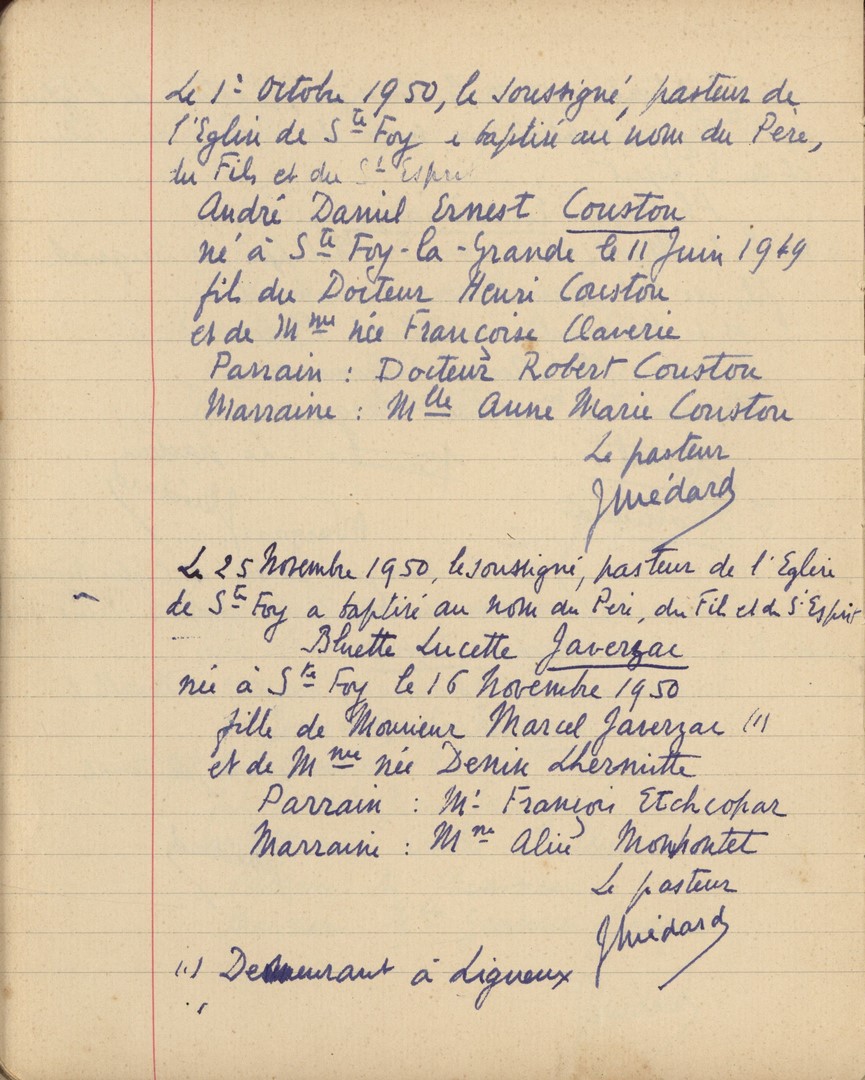 Le 1er Octobre 1950, le soussigné, pasteur de
l'Eglise de Ste Foy a baptisé au nom du Père,
du Fils et du St Esprit
André Daniel Ernest Couston
né à Ste Foy-la-Grande le 11 Juin 1949
fils du Docteur Henri Couston
et de Mme née Françoise Claverie
Parrain : Docteur Robert Couston
Marraine : Mlle Anne Marie Couston
Le pasteur
J Médard
Le 25 Novembre 1950, le soussigné, pasteur de l'Eglise
de Ste Foy a baptisé au nom du Père, du Fils et du St Esprit
Bluette Lucette Javerzac
née à Ste Foy le 16 Novembre 1950
fille de Monsieur Marcel Javerzac (1)
et de Mme née Denise Lhermitte
Parrain : Mr François Etchcopar
Marraine : Mme Aline Monpontet
Le pasteur
J Médard
(1) Demeurant à Ligueux